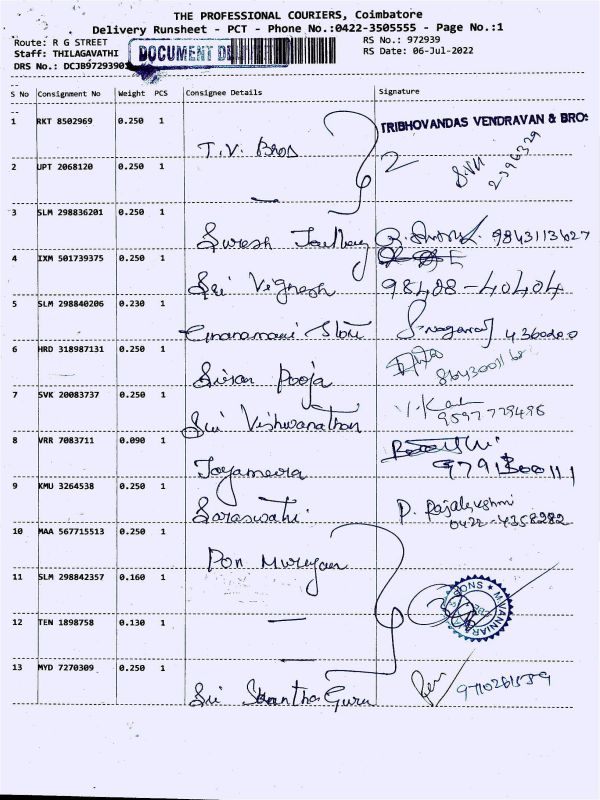 THE PROFESSIONAL COURIERS, Coimbatore
Delivery Runsheet - PCT - Phone No.:0422-3505555 - Page No.:1
Route: R G STREET RS No.: 972939
Staff: THILAGAVATHI RS Date: 06-Jul-2022
DRS No.: DCJB97293901
DOCUMENT
S No Consignment No Weight PCS Consignee Details Signature
1 RKT 8502969 0.250 1 T.V. Bros TRIBHOVANDAS VENDRAVAN & BROS
2 UPT 2068120 0.250 1 — 2396329
3 SLM 298836201 0.250 1 Suresh 9843113627
4 IXM 501739375 0.250 1 Sri Vignesh 98408-40404
5 SLM 298840206 0.230 1 Store S. nagaraj 4360200
6 HRD 318987131 0.250 1 Pooja
7 SVK 20083737 0.250 1 Sri Vishwanathan
8 VRR 7083711 0.090 1 Jayameera
9 KMU 3264538 0.250 1 Saraswathi P. Rajalakshmi
0422-4358282
10 MAA 567715513 0.250 1 Pon Murugan
11 SLM 298842357 0.160 1
12 TEN 1898758 0.130 1 —
13 MYD 7270309 0.250 1 Sri Guru